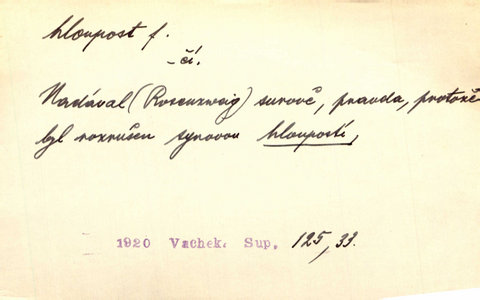 hloupost f.
-čí.
Nadával (Rosenzweig) surově, pravda, protože
byl rozrušen synovou hloupostí,
1920 Vachek. Sup. 125,33.